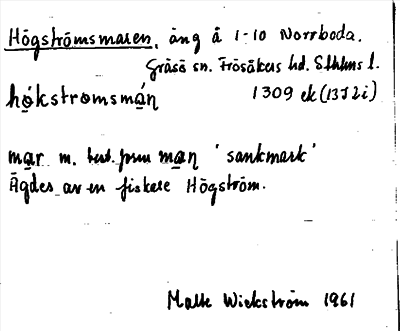 Högströmsmaren, äng å 1-10 Norrboda.
Gräsö sn. Frösåkers hd. Sthlms l.
hǫ́kstromsmán 1309 ek (13I2i)
mar m. best. form man 'sankmark'
Ägdes av en fiskare Högström.
Malte Wickström 1961